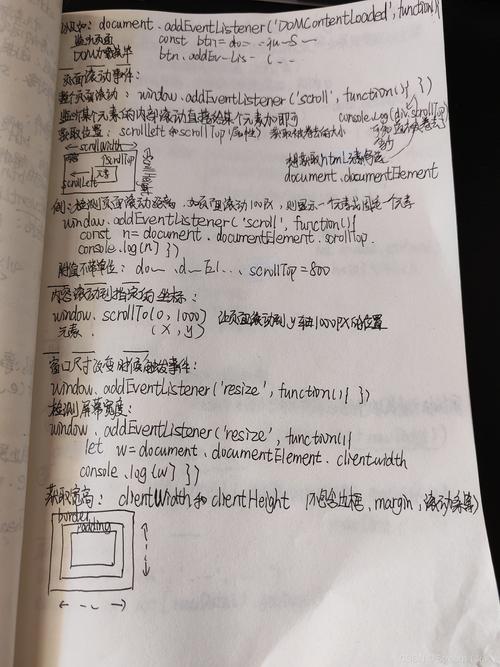 例如: document.addEventListener('DOMContentLoaded',function(){
监听页面 const btn=do... .qu-S—
DOM加载完毕 btn.addEv-Lis-(...
页面滚动事件:
整个页面滚动: window.addEventListener('scroll',function(){ })
监听某个元素的内部滚动直接给某个元素加即可 console.log(div.scrollTop)
获取位置: scrollLeft和scrollTop(属性) 获取被卷去的大小
scrollWidth
scrollTop
内容
元素
scrollLeft
想获取html
document.documentElement
例: 检测页面滚动 100px, 则显示一个元素 一个元素
window.addEventListener('scroll',function(){
const n=document.documentElement.scrollTop.
console.log(n) })
赋值不带单位: do... .d—El... scrollTop=800
内容滚动到指定的坐标:
window.scrollTo(0,1000) 让页面滚动到y轴1000px的位置
元素. (x,y)
窗口尺寸改变时候触发事件:
window.addEventListener('resize',function(){ })
检测屏幕宽度:
window.addEventListener('resize',function(){
let w=document.documentElement.clientwidth
console.log(w) })
获取宽高: clientWidth和clientHeight (不包含边框,margin,滚动条等)
border
padding